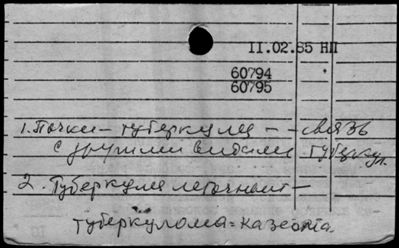 II.02.85 НП
60794
60795
1. Почки – туберкулез – – связь
с другими видами туберкул.
2. Туберкулез легочный –
туберкулома = казеома